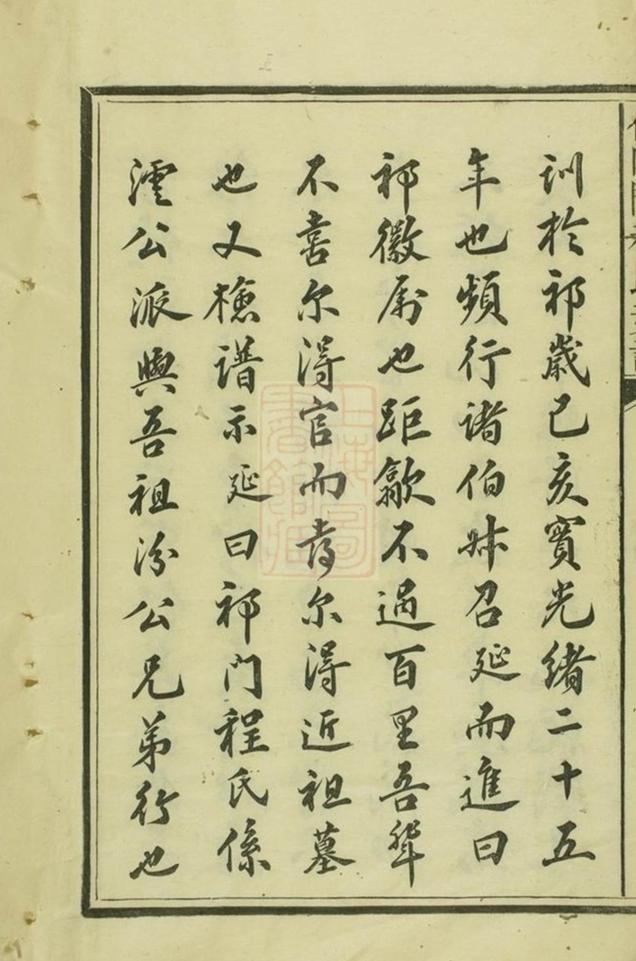 训於祁歲己亥實光緒二十五
年也頻行諸伯叔召延而進曰
祁徽屬也距歙不過百里吾輩
不喜尔得官而喜尔得近祖墓
也又檢譜示延曰祁門程氏係
澐公派與吾祖汾公兄弟行也